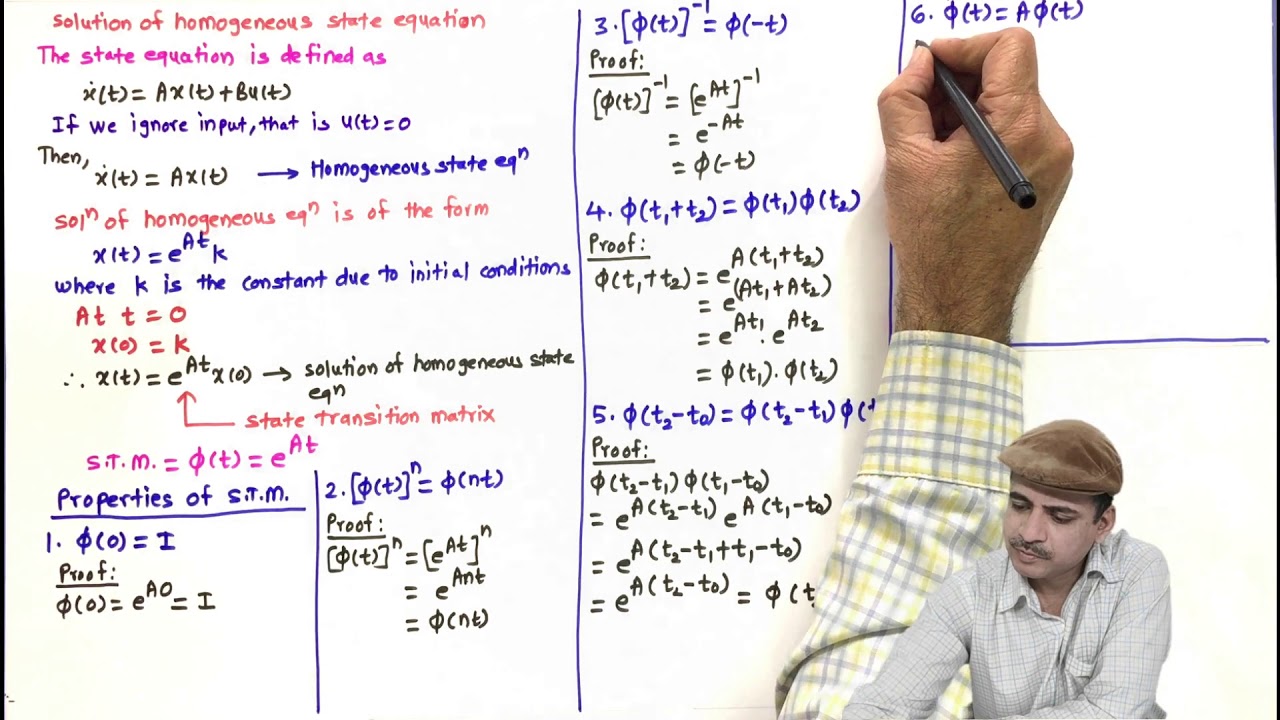 solution of homogeneous state equation
The state equation is defined as
ẋ(t) = Ax(t) + Bu(t)
If we ignore input, that is u(t) = 0
Then,
ẋ(t) = Ax(t) → Homogeneous state eqⁿ
solⁿ of homogeneous eqⁿ is of the form
x(t) = e^{At} k
where k is the constant due to initial conditions
At t = 0
x(0) = k
∴ x(t) = e^{At} x(0) → solution of homogeneous state
eqⁿ
state transition matrix
S.T.M. = ϕ(t) = e^{At}
Properties of S.T.M.
1. ϕ(0) = I
Proof:
ϕ(0) = e^{A0} = I
2. [ϕ(t)]ⁿ = ϕ(nt)
Proof:
[ϕ(t)]ⁿ = [e^{At}]ⁿ
= e^{Ant}
= ϕ(nt)
3. [ϕ(t)]⁻¹ = ϕ(-t)
Proof:
[ϕ(t)]⁻¹ = [e^{At}]⁻¹
= e^{-At}
= ϕ(-t)
4. ϕ(t₁+t₂) = ϕ(t₁) ϕ(t₂)
Proof:
ϕ(t₁+t₂) = e^{A(t₁+t₂)}
= e^{(At₁+At₂)}
= e^{At₁} . e^{At₂}
= ϕ(t₁) . ϕ(t₂)
5. ϕ(t₂-t₀) = ϕ(t₂-t₁) ϕ(t
Proof:
ϕ(t₂-t₁) ϕ(t₁-t₀)
= e^{A(t₂-t₁)} e^{A(t₁-t₀)}
= e^{A(t₂-t₁+t₁-t₀)}
= e^{A(t₂-t₀)} = ϕ(t
6. ϕ̇(t) = Aϕ(t)